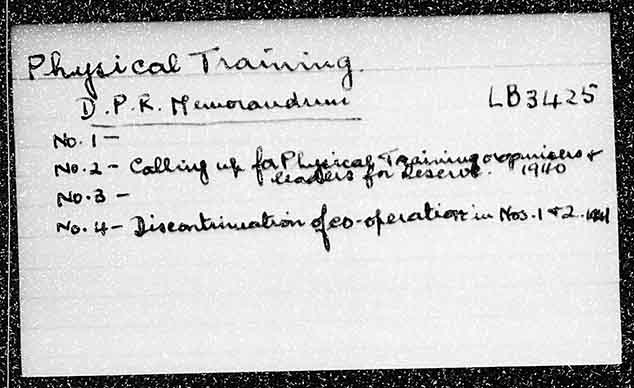 Physical Training.
D.P.R. Memorandum LB3425
No. 1 –
No. 2 – Calling up for Physical Training organisers &
leaders for Reserve. 1940
No. 3 –
No. 4 – Discontinuation of co-operation in Nos. 1 & 2. 1941